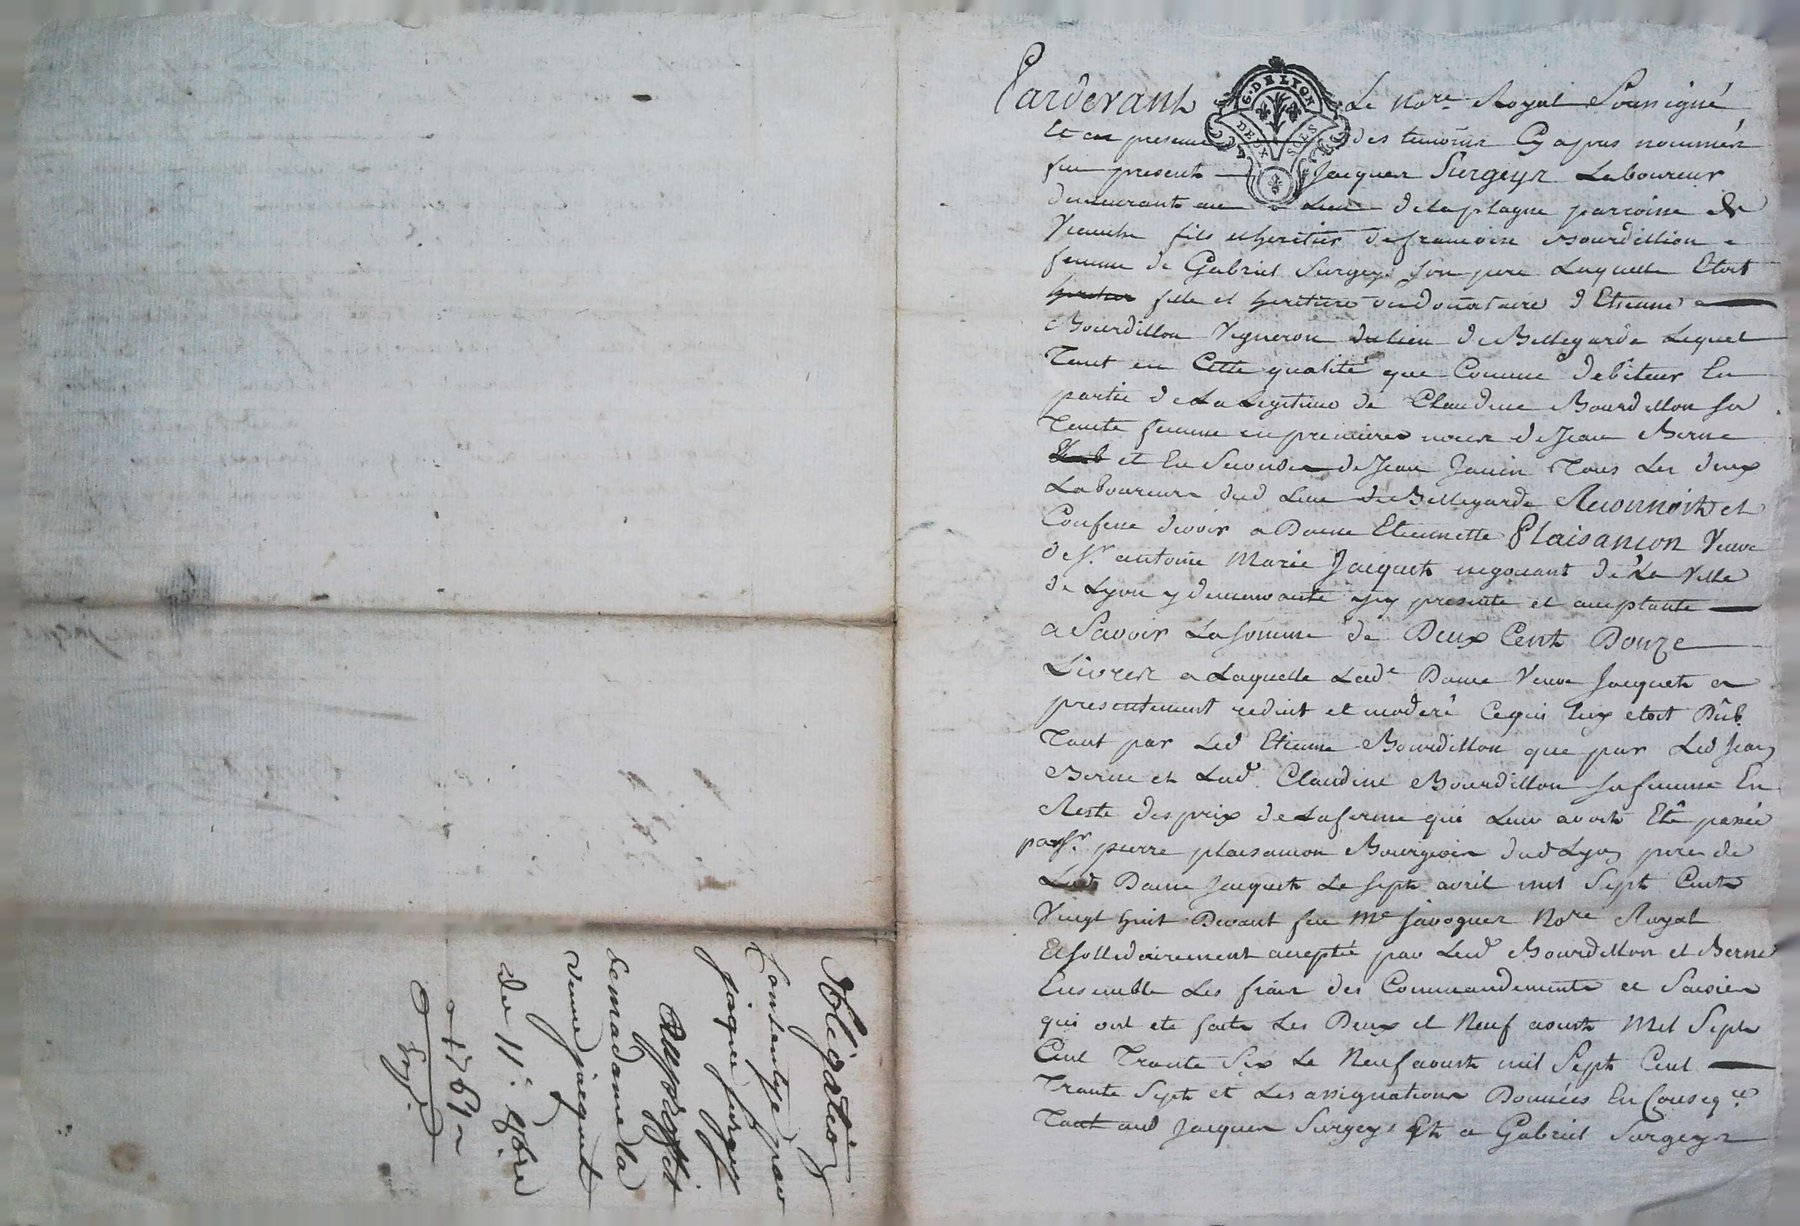 Pardevant Le Nore Royal Soussigné
G. DE LYON
DEUX SOLS
Et en presence des temoins Cy apres nommés
fut present Jacques Surgeyr Laboureur
demeurants au Lieu de la plagne parroisse de
fils et heritier de francoise Bourdillion
femme de Gabriel Surgeyr son pere Laquelle Etoit
fille et heritiere ou donnataire d'Etienne
Bourdillon Vigneron du lieu de Bellegarde Lequel
Tant en Cette qualité que Comme debiteur En
partie de La Legitime de Claudine Bourdillon sa
Tante femme en premieres noces de Jean Berne
et En Secondes de Jean Janin Tous Les deux
Laboureurs dud Lieu de Bellegarde Reconnoit et
Confesse devoir a Dame Etiennette Plaisancon Veuve
de Sr antoine Marie Jacquet negociant de La Ville
de Lyon y demeurante icy presente et acceptante
a Savoir La somme de Deux Cent Douze
Livres a Laquelle Lade Dame Veuve Jacquet a
presentement reduit et moderé Ce qui luy etoit Dub
Tant par Led Etienne Bourdillon que par Led Jean
Berne et Lad Claudine Bourdillon sa femme En
Reste des prix de La ferme qui Leur avoit Eté passée
par Sr pierre plaisancon Bourgeois dud Lyon pere de
Lad Dame Jacquet Le Sept avril mil Sept Cent
Vingt huit Devant feu Me Javogues Nore Royal
Et sollidairement acceptée par Led Bourdillon et Berne
Ensemble Les frais des Commandements et Saisies
qui ont eté faits Les Deux et Neuf aoust Mil Sept
Cent Trante Six Le Neuf aoust mil Sept Cent
Trante Sept et Les assignations Données En Conseqce
Tant aud Jacques Surgeyr Et a Gabriel Surgeyr
Obligation
Consentye par
jacque surgey
Au proffit
de madame la
veuve jacquet
du 11e 8bre
1761